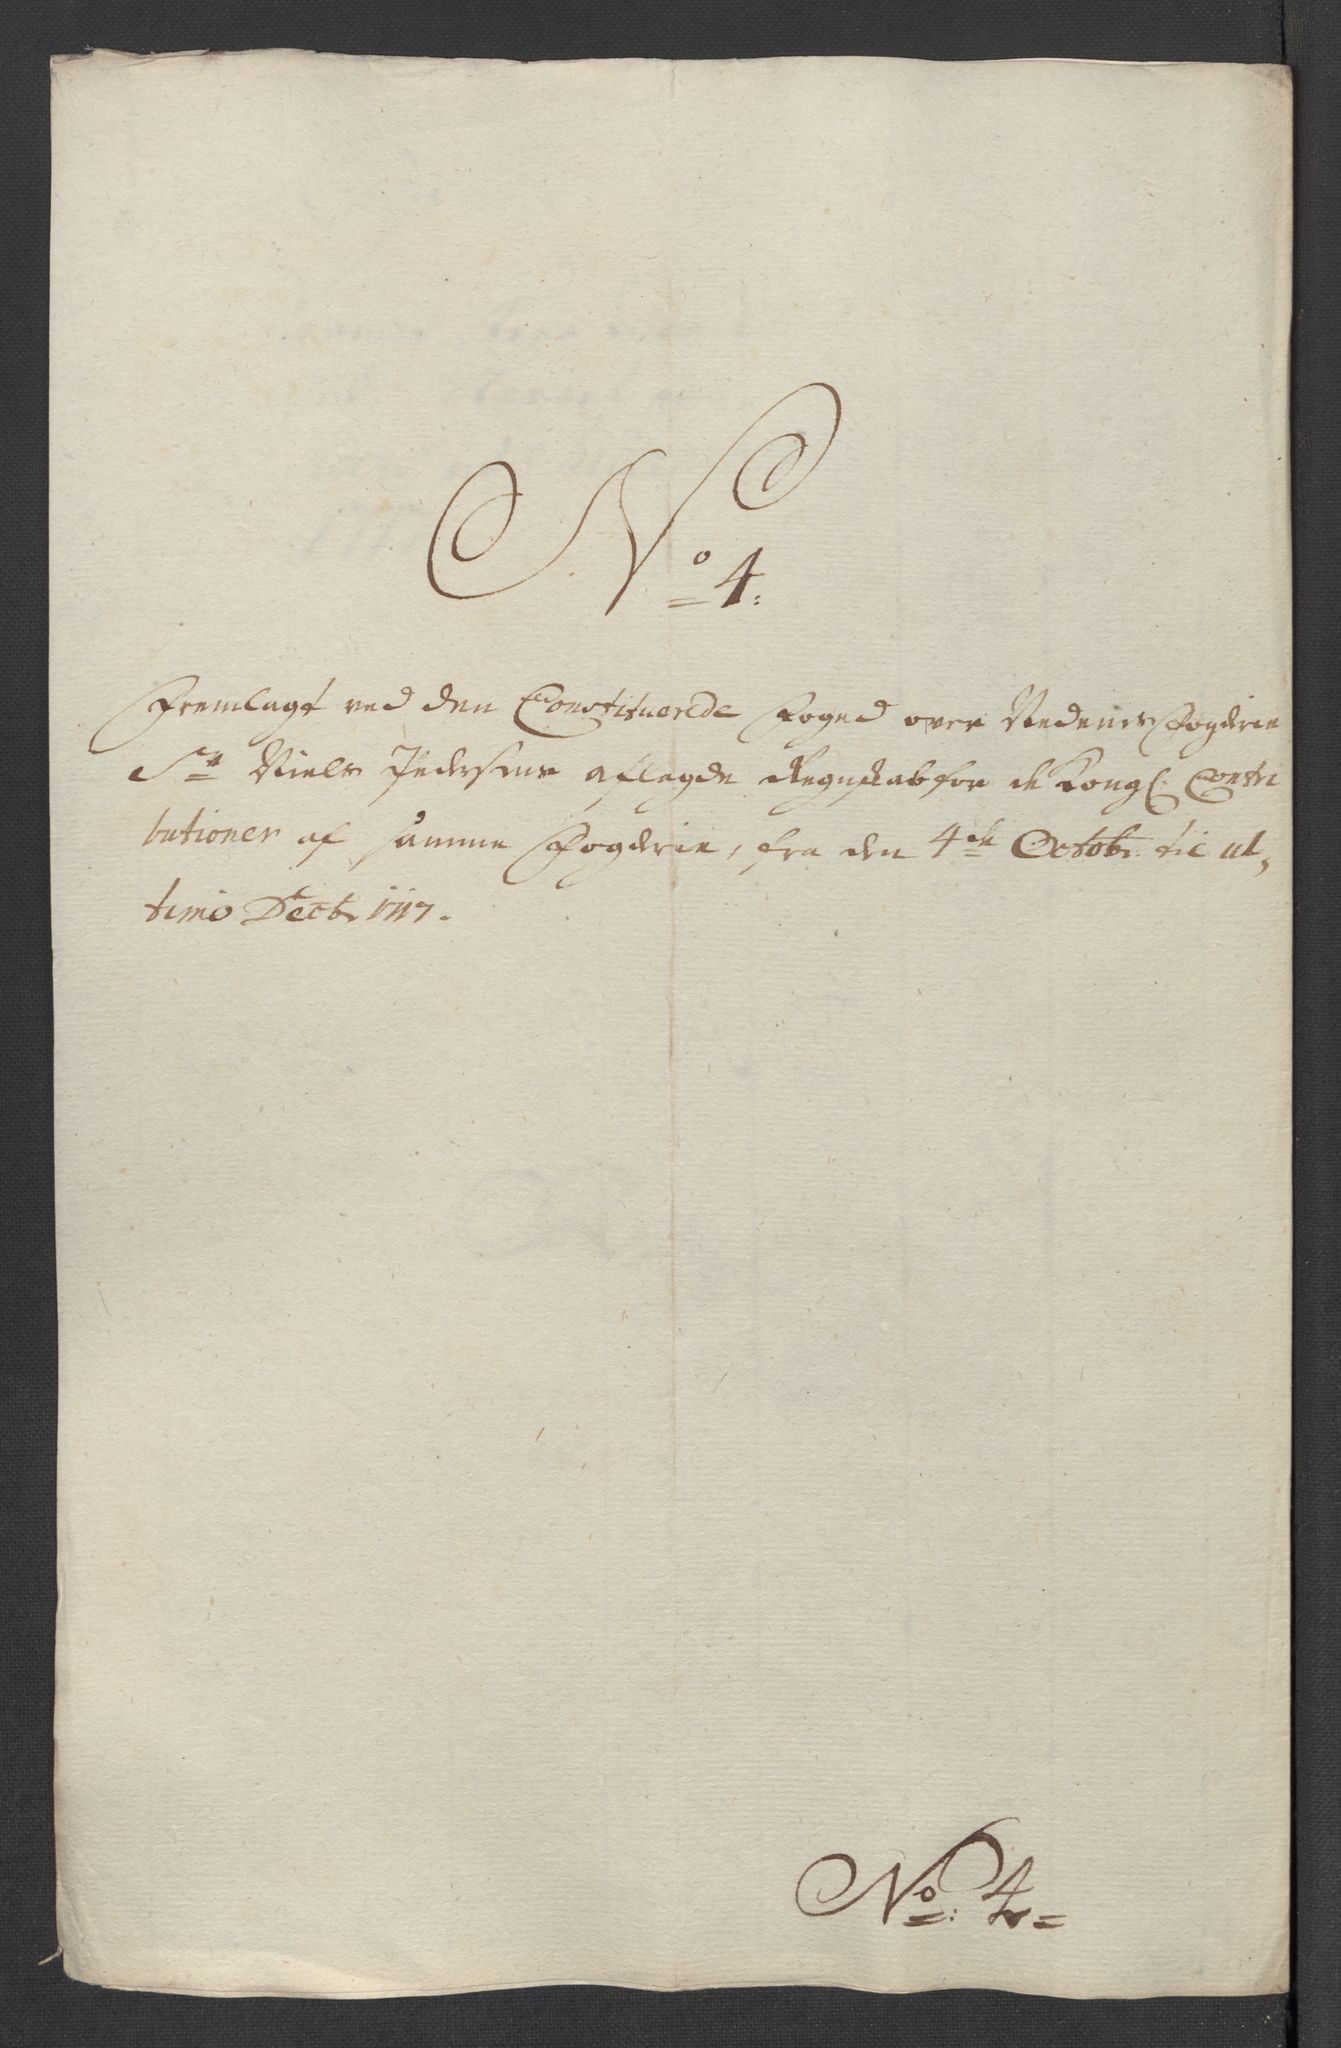 No 4:
Fremlagt ved den Constituerede Foged over Nedenes Fogderie
Sr Niels Pedersens aflegde Regnskab for de Kongl: Contri
butioner af samme Fogderie, fra den 4de Octobr til ul,
timo Decbr 1717.
No: 4=